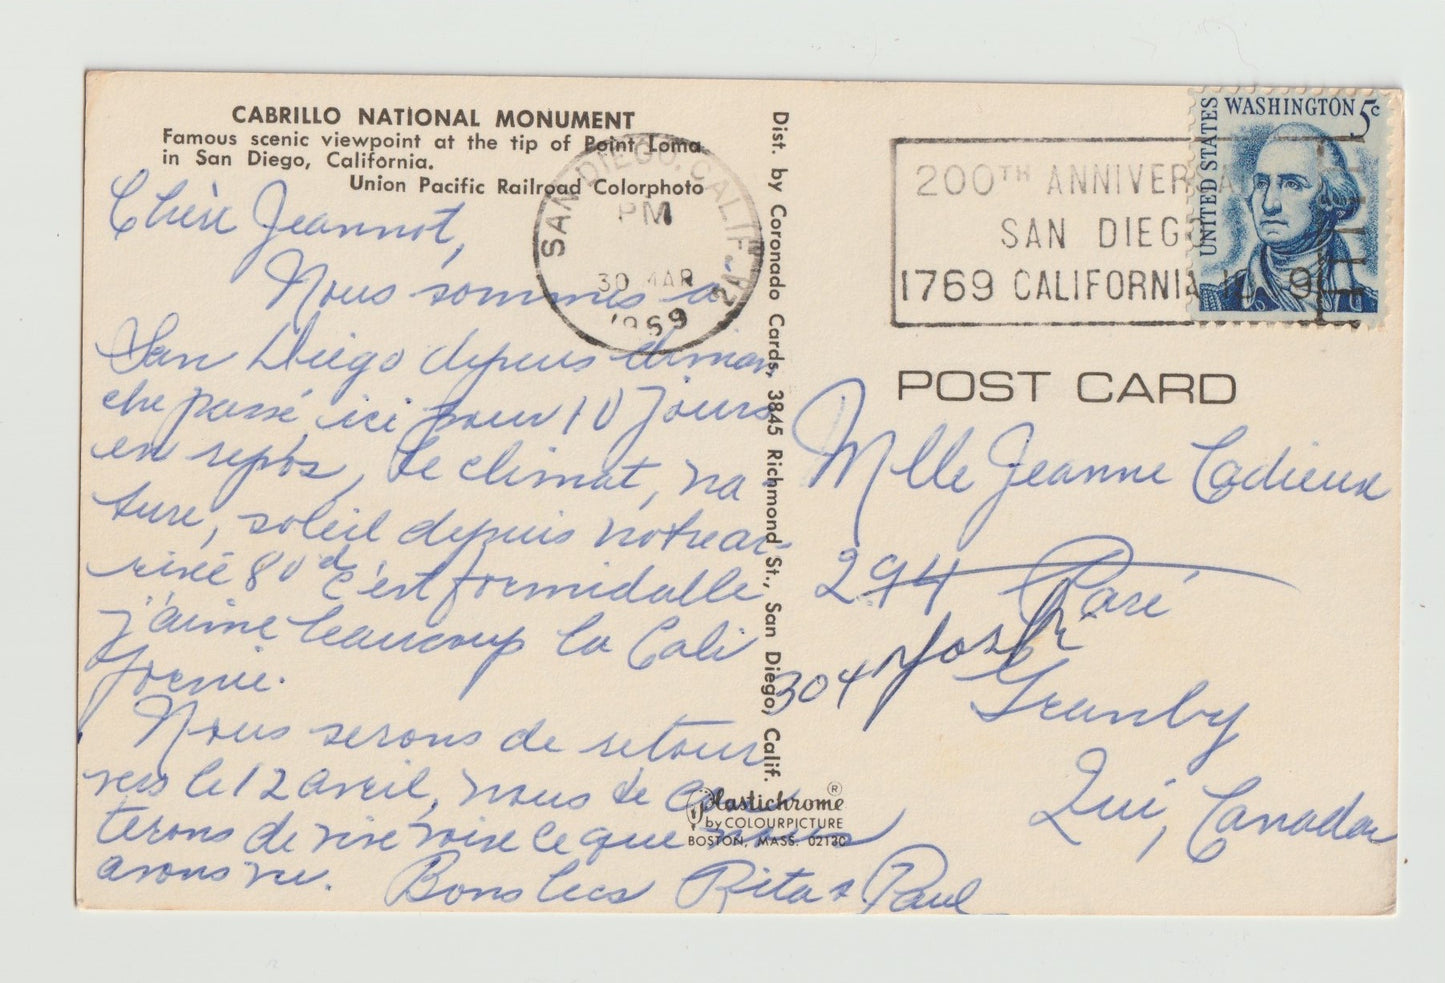 CABRILLO NATIONAL MONUMENT
Famous scenic viewpoint at the tip of Point Loma
in San Diego, California.
Union Pacific Railroad Colorphoto
Chère Jeannot,
Nous sommes à
San Diego depuis diman
che passé, ici pour 10 jours
en repos, le climat, na
ture, soleil depuis notre ar
rivée 80d c'est formidable
j'aime beaucoup la Cali
fornie.
Nous serons de retour
vers le 12 avril, nous te
terons de vive voix ce que nous
avons vu. Bons becs Rita & Paul
SAN DIEGO, CALIF
PM
30 MAR
1969
2A
Dist. by Coronado Cards, 3845 Richmond St., San Diego, Calif.
Plastichrome ®
by COLOURPICTURE
BOSTON, MASS. 02130
200TH ANNIVERSA
SAN DIEG
1769 CALIFORNIA 19 9
UNITED STATES
WASHINGTON 5c
POST CARD
Mlle Jeanne Cadieux
294 Paré
304
Granby
Qué, Canada